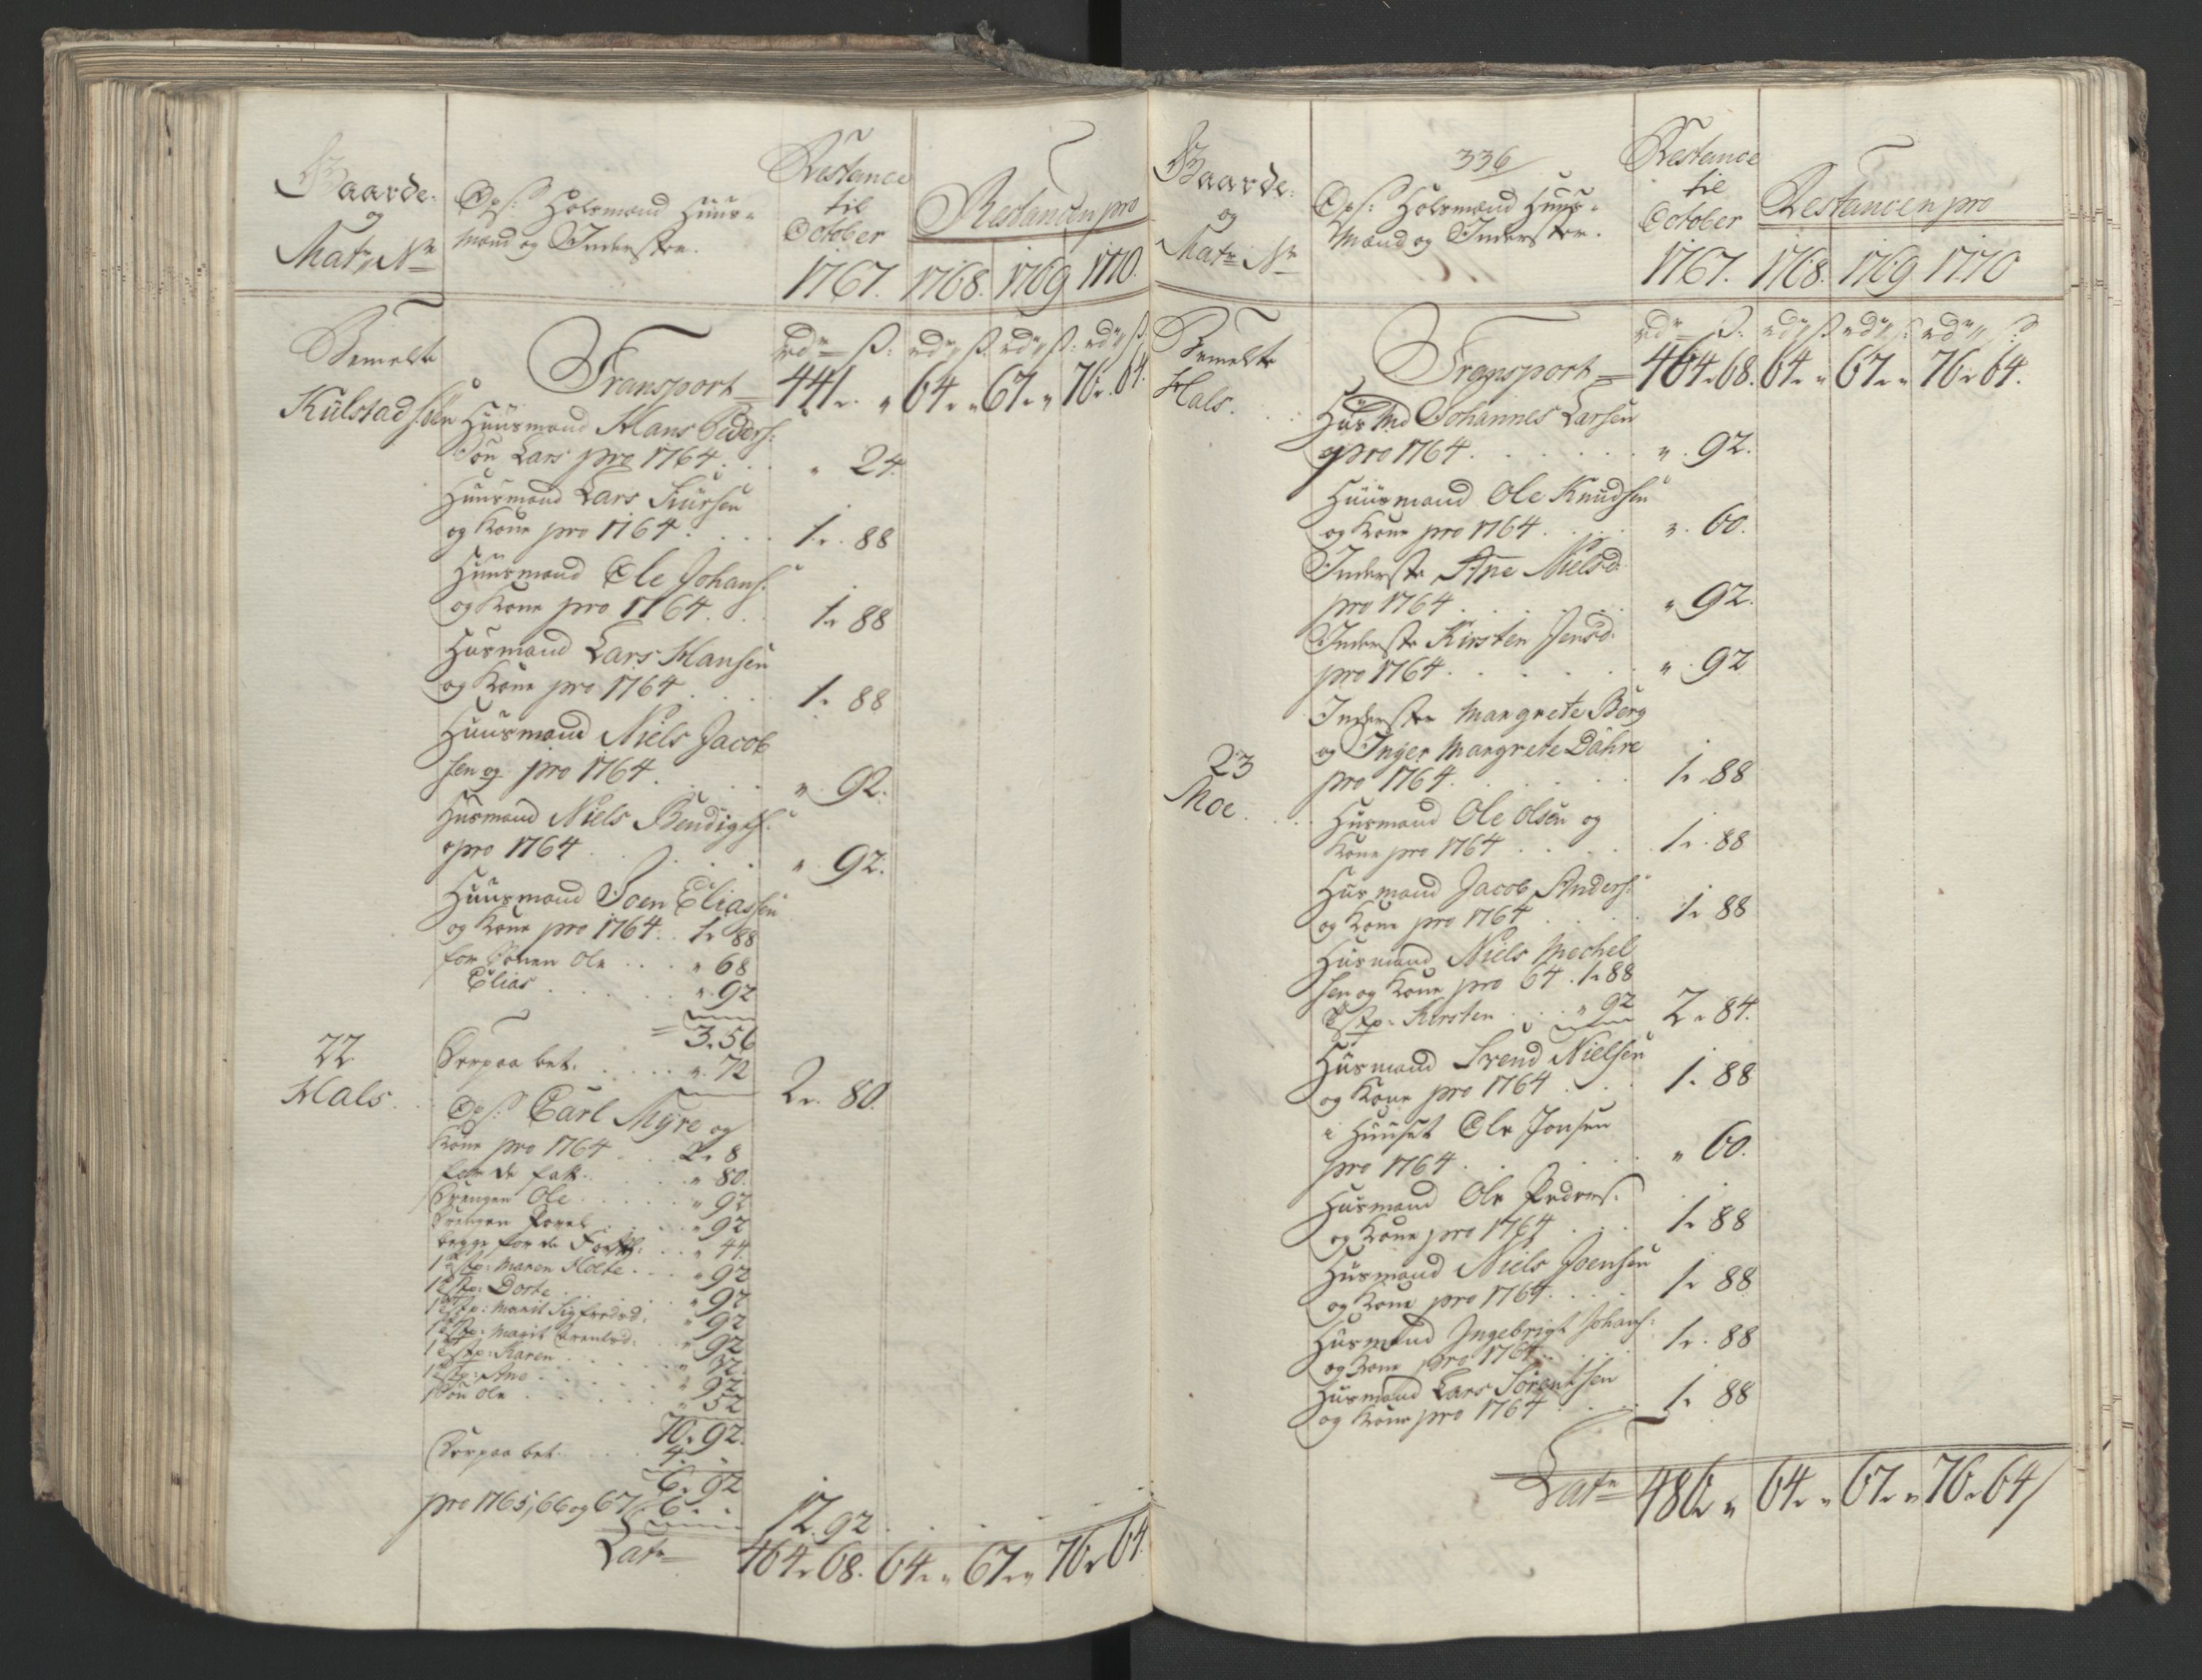 Gaarde
og
Matr. No
Ops: Holsmænd Huus-
mænd og Inderster.
Restance
til
October
1767.
Restancen pro
1768. 1769 1770.
rdr ß: rdr ß rdr ß: rdr ß
Bemelte
Kulstad
Transport 441. " 64. " 67. " 76. 64.
Huusmand Hans Peders:
Søn Lars pro 1764 . . . " 24.
Huusmand Lars Siursen
og Kone pro 1764 . . . 1. 88
Huusmand Ole Johans:
og Kone pro 1764 . . . 1. 88
Husmand Lars Hansen
og Kone pro 1764 . . . 1. 88
Huusmand Niels Jacob
sen og pro 1764 . . . " 92.
Husmand Niels Bendigts:
pro 1764 . . . " 92.
Huusmand Joen Eliassen
og Kone pro 1764 . . 1. 88
for Sønnen Ole . . . " 68
Elias . . . " 92
= 3. 56
Derpaa bet. . . . " 72
2. 80.
22
Hals
Ops: Carl Myre og
Kone pro 1764 . . 2. 8
for de fatt. . . . " 80.
Drengen Ole . . . " 92
Drengen Povel . . . " 92
begge for de Fatt: . . " 44.
1 Tstp: Maren Holte . . . " 92
1 Tstp: Dorte . . . " 92
1 Tstp: Marit Sigfredsd: " 92
1 Tstp: Marit " 92
1 Tstp: Karen . . . " 32.
1 Tstp: Ane . . . " 92
1 Søn Ole . . . " 52
10. 92.
Derpaa bet. . . . 4. .
6. 92
pro 1765, 66 og 67 . 6. . .
12. 92
Lat. 464. 68. 64. " 67. " 76. 64.
Gaarde
og
Matr. No
336
Ops: Holsmænd Huus-
Mænd og Inderster.
Restance
til
October
1767.
Restancen pro
1768. 1769 1770
rdr ß: rdr ß rdr ß: rdr ß:
Bemelte
Hals.
Transport 464. 68. 64. " 67. " 76. 64.
Husmd Johannes Larsen
pro 1764 . . . " 92.
Huusmand Ole Knudsen
og Kone pro 1764 . . . " 60.
Inderste Ane Nielsd:
pro 1764 . . . " 92.
Inderste Kirsten Jensd:
pro 1764 . . . " 92
Inderster Margrete Berg
og Inger Margrete Dahre
pro 1764 . . . 1. 88
23
Moe
Husmand Ole Olsen og
Kone pro 1764 . . . 1. 88
Husmand Jacob Anders:
og Kone pro 1764 . . . 1. 88
Husmand Niels Mechel
sen og Kone pro 64 . 1. 88
Tstp: Kirsten . . . " 92
2. 84.
Husmand Svend Nielsen
og Kone pro 1764 . . . 1. 88
i Huuset Ole Jonsen
pro 1764 . . . " 60.
Husmand Ole Peders:
og Kone pro 1764 . . . 1. 88
Husmand Niels Joensen
og Kone pro 1764 . . . 1. 88
Husmand Ingebrigt Johans:
og Kone pro 1764 . . . 1. 88
Husmand Lars Sørentsen
og Kone pro 1764 . . . 1. 88
Lat. 486. " 64. " 67. " 76. 64